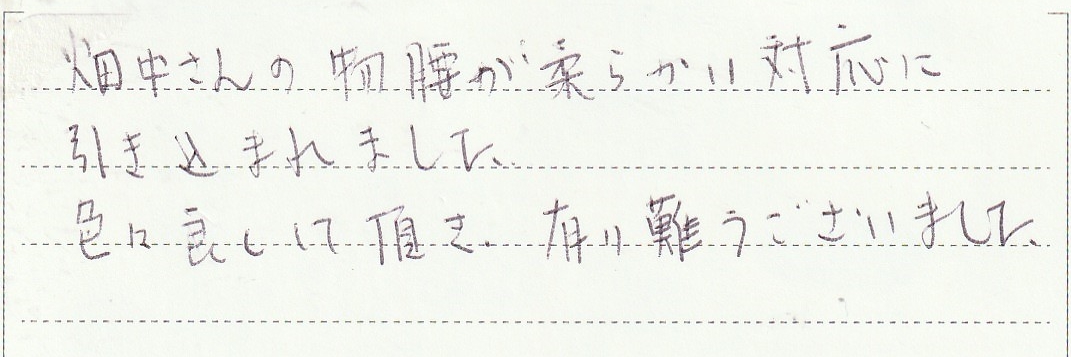 畑中さんの物腰が柔らかい対応に
引き込まれました。
色々良くして頂き、有り難うございました。